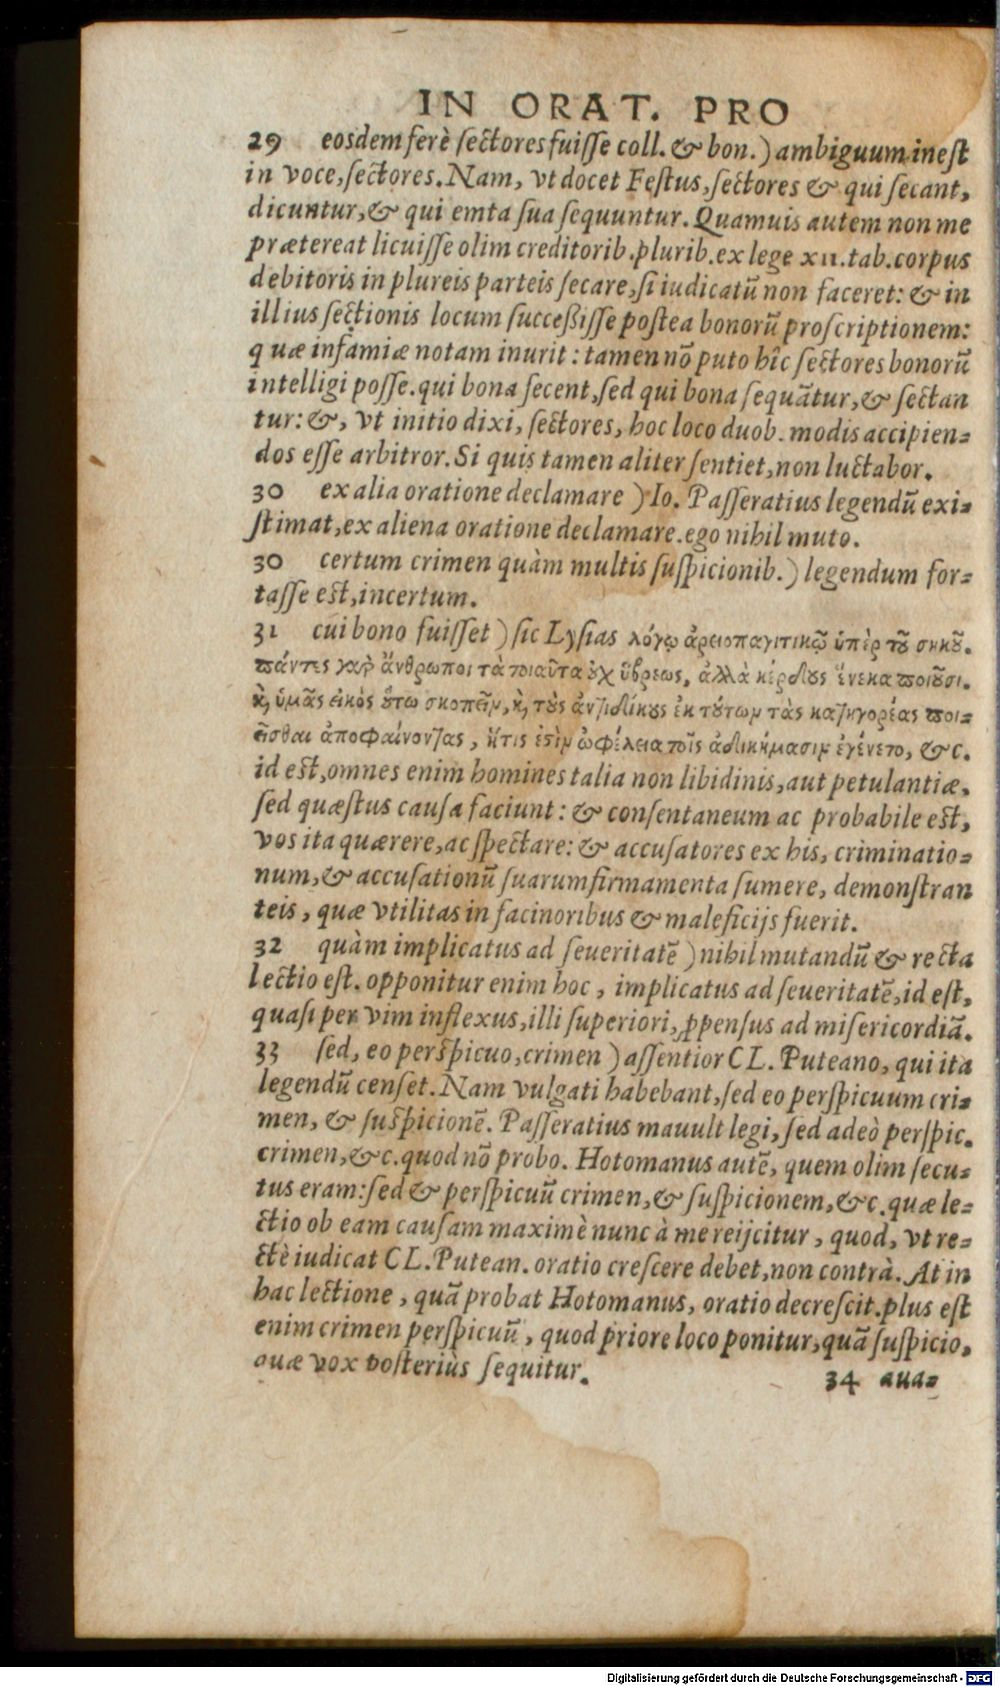 IN ORAT. PRO
29 eosdem ferè sectores fuisse coll. & bon.) ambiguum inest
in voce, sectores. Nam, vt docet Festus, sectores & qui secant,
dicuntur, & qui emta sua sequuntur. Quamuis autem non me
prætereat licuisse olim creditorib. plurib. ex lege XII. tab. corpus
debitoris in plureis parteis secare, si iudicatũ non faceret: & in
illius sectionis locum successisse postea bonorũ proscriptionem:
quæ infamiæ notam inurit: tamen nõ puto hîc sectores bonorũ
intelligi posse. qui bona secent, sed qui bona sequãtur, & sectan
tur: &, vt initio dixi, sectores, hoc loco duob. modis accipien=
dos esse arbitror. Si quis tamen aliter sentiet, non luctabor.
30 ex alia oratione declamare ) Io. Passeratius legendũ exi=
stimat, ex aliena oratione declamare. ego nihil muto.
30 certum crimen quàm multis suspicionib.) legendum for=
tasse est, incertum.
31 cui bono fuisset ) sic Lysias λόγῳ ἀρειοπαγιτικῷ ὑπὲρ τοῦ σηκοῦ.
πάντες γὰρ ἄνθρωποι τὰ τοιαῦτα οὐχ ὕβρεως, ἀλλὰ κέρδους ἕνεκα ποιοῦσι.
καὶ ὑμᾶς εἰκὸς οὕτω σκοπεῖν, καὶ τοὺς ἀντιδίκους ἐκ τούτων τὰς κατηγορίας ποι=
εῖσθαι ἀποφαίνοντας, ἥτις ἐστὶν ὠφέλεια τοῖς ἀδικήμασιν ἐγένετο, &c.
id est, omnes enim homines talia non libidinis, aut petulantiæ,
sed quæstus causa faciunt: & consentaneum ac probabile est,
vos ita quærere, ac spectare: & accusatores ex his, criminatio=
num, & accusationũ suarum firmamenta sumere, demonstran
teis, quæ vtilitas in facinoribus & maleficijs fuerit.
32 quàm implicatus ad seueritatẽ ) nihil mutandũ & recta
lectio est. opponitur enim hoc, implicatus ad seueritatẽ, id est,
quasi per vim inflexus, illi superiori, ꝓpensus ad misericordiã.
33 sed, eo perspicuo, crimen ) assentior CL. Puteano, qui ita
legendũ censet. Nam vulgati habebant, sed eo perspicuum cri=
men, & suspicionẽ. Passeratius mauult legi, sed adeò perspic.
crimen, &c. quod nõ probo. Hotomanus autẽ, quem olim secu=
tus eram: sed & perspicuũ crimen, & suspicionem, &c. quæ le=
ctio ob eam causam maximè nunc à me reijcitur, quod, vt re=
ctè iudicat CL. Putean. oratio crescere debet, non contrà. At in
hac lectione, quã probat Hotomanus, oratio decrescit. plus est
enim crimen perspicuũ, quod priore loco ponitur, quã suspicio,
quæ vox posteriùs sequitur.
34 qua=
Digitalisierung gefördert durch die Deutsche Forschungsgemeinschaft - DFG